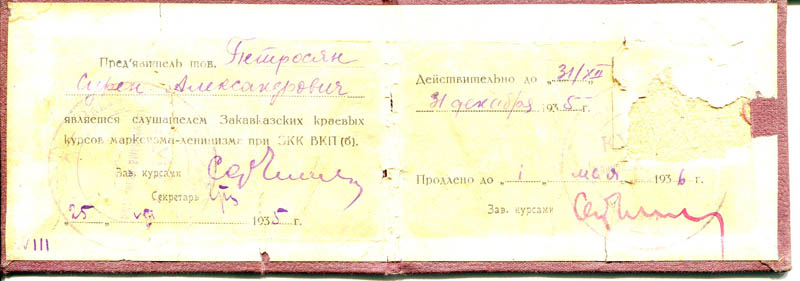 Пред'явитель тов. Петросян
Сурен Александрович
является слушателем Закавказских краевых
курсов марксизма-ленинизма при ЗКК ВКП(б).
Зав. курсами
Секретарь
"25" VIII 1935 г.
VIII
Действительно до 31/XII
31 декабря 1935 г.
Продлено до "1" мая 1936 г.
Зав. курсами